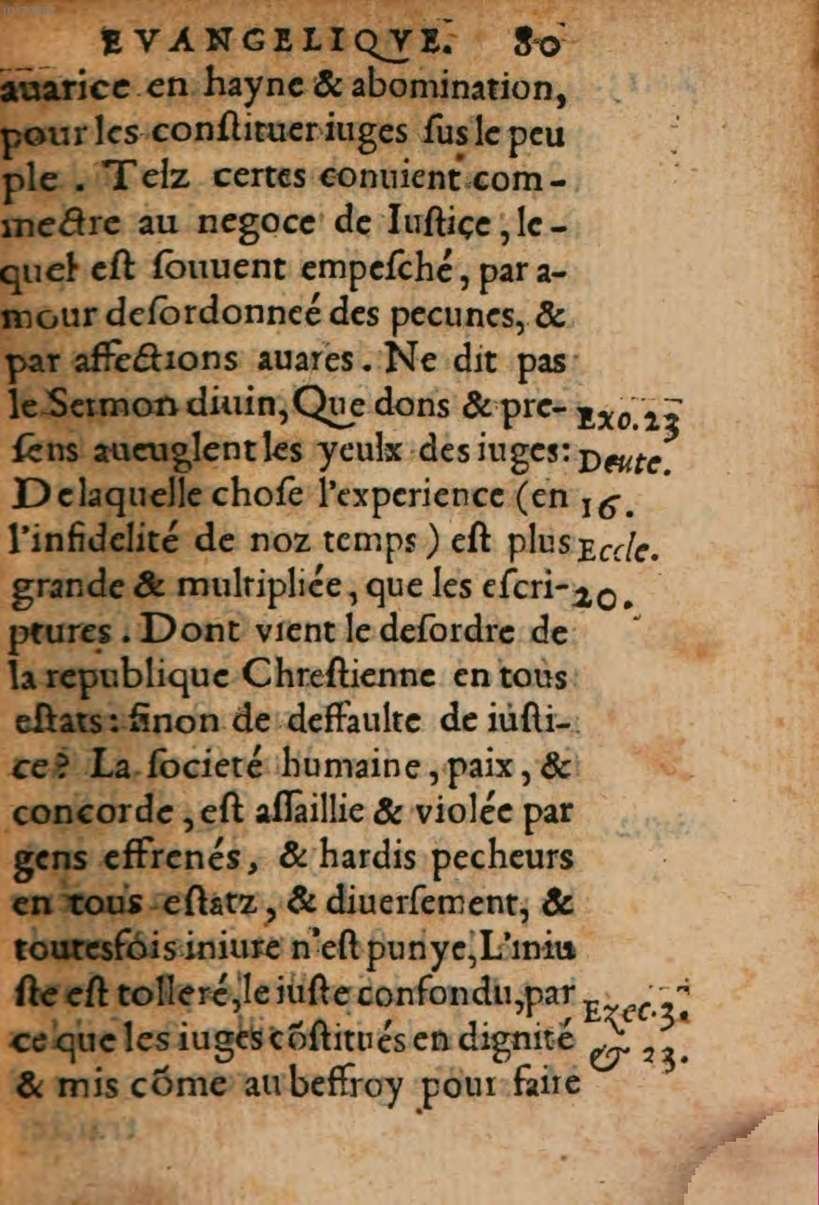 EVANGELIQVE. 80
auarice en hayne & abomination,
pour les conſtituer iuges ſus le peu
ple . Telz certes conuient com-
mectre au negoce de Iuſtiçe, le-
quel eſt ſouuent empeſché, par a-
mour deſordonneé des pecunes, &
par affections auares. Ne dit pas
le Sermon diuin, Que dons & pre-
ſens aueuglent les yeulx des iuges:
De laquelle choſe l'experience (en
l'infidelité de noz temps) eſt plus
grande & multipliée, que les eſcri-
ptures. Dont vient le deſordre de
la republique Chreſtienne en tous
eſtats: ſinon de deffaulte de iuſti-
ce? La ſocieté humaine, paix, &
concorde, eſt aſſaillie & violée par
gens effrenés, & hardis pecheurs
en tous eſtatz, & diuerſement, &
toutesfois iniure n'eſt punye, L'iniu
ſte eſt tolleré, le iuſte confondu, par
ce que les iuges cõſtitués en dignité
& mis cõme au beffroy pour faire
Exo. 23
Deute.
16.
Eccle.
20.
Ezec. 3.
& 23.